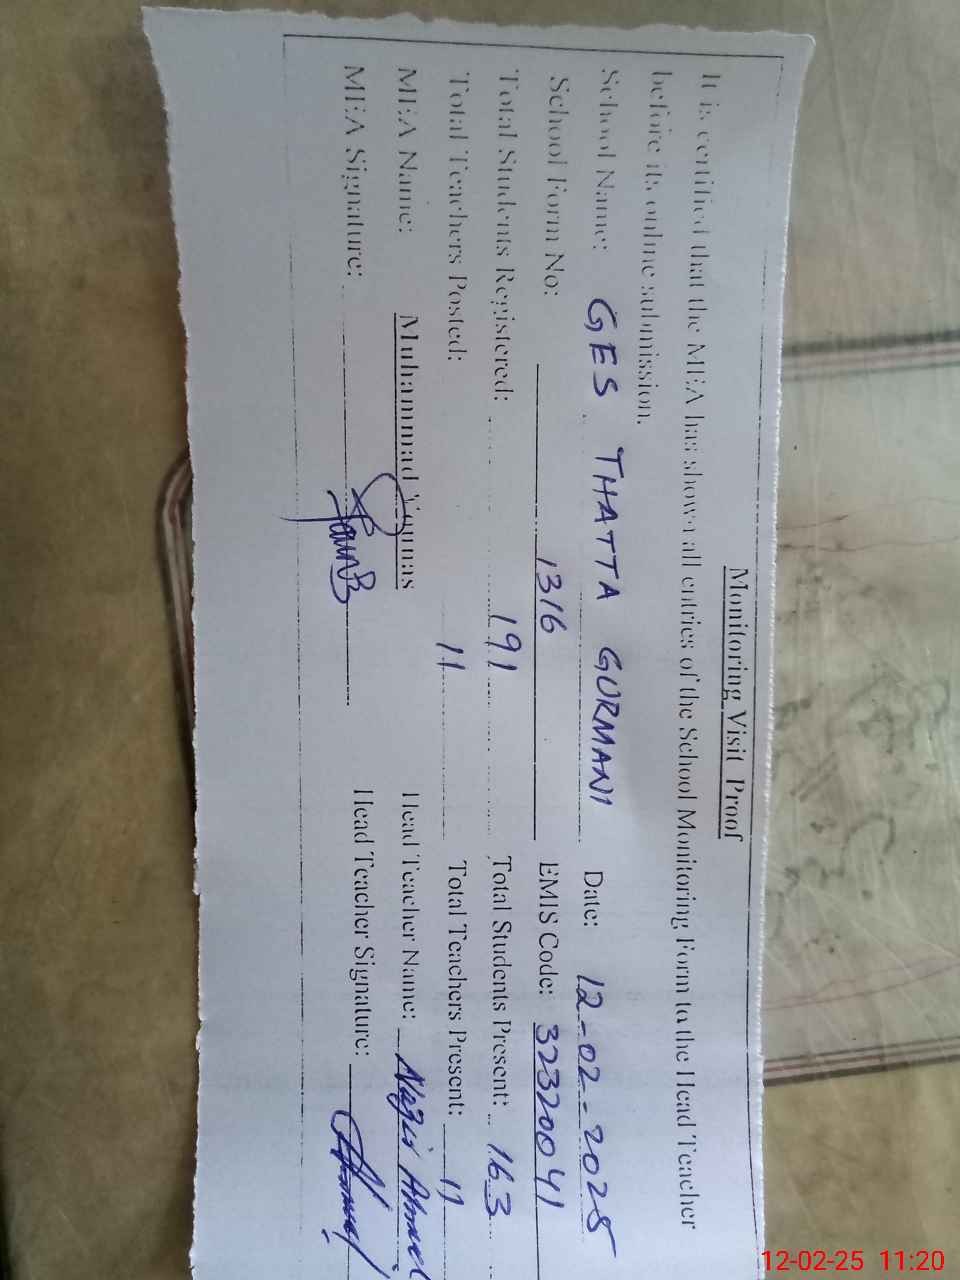 Monitoring Visit Proof
It is certified that the MEA has shown all entries of the School Monitoring Form to the Head Teacher
before its online submission.
School Name: GES THATTA GURMANI Date: 12-02-2025
School Form No: 1316 EMIS Code: 32320041
Total Students Registered: 191 Total Students Present: 163
Total Teachers Posted: 11 Total Teachers Present: 11
MEA Name: Muhammad Younas Head Teacher Name: Nazir Ahmed
MEA Signature: Head Teacher Signature:
12-02-25 11:20